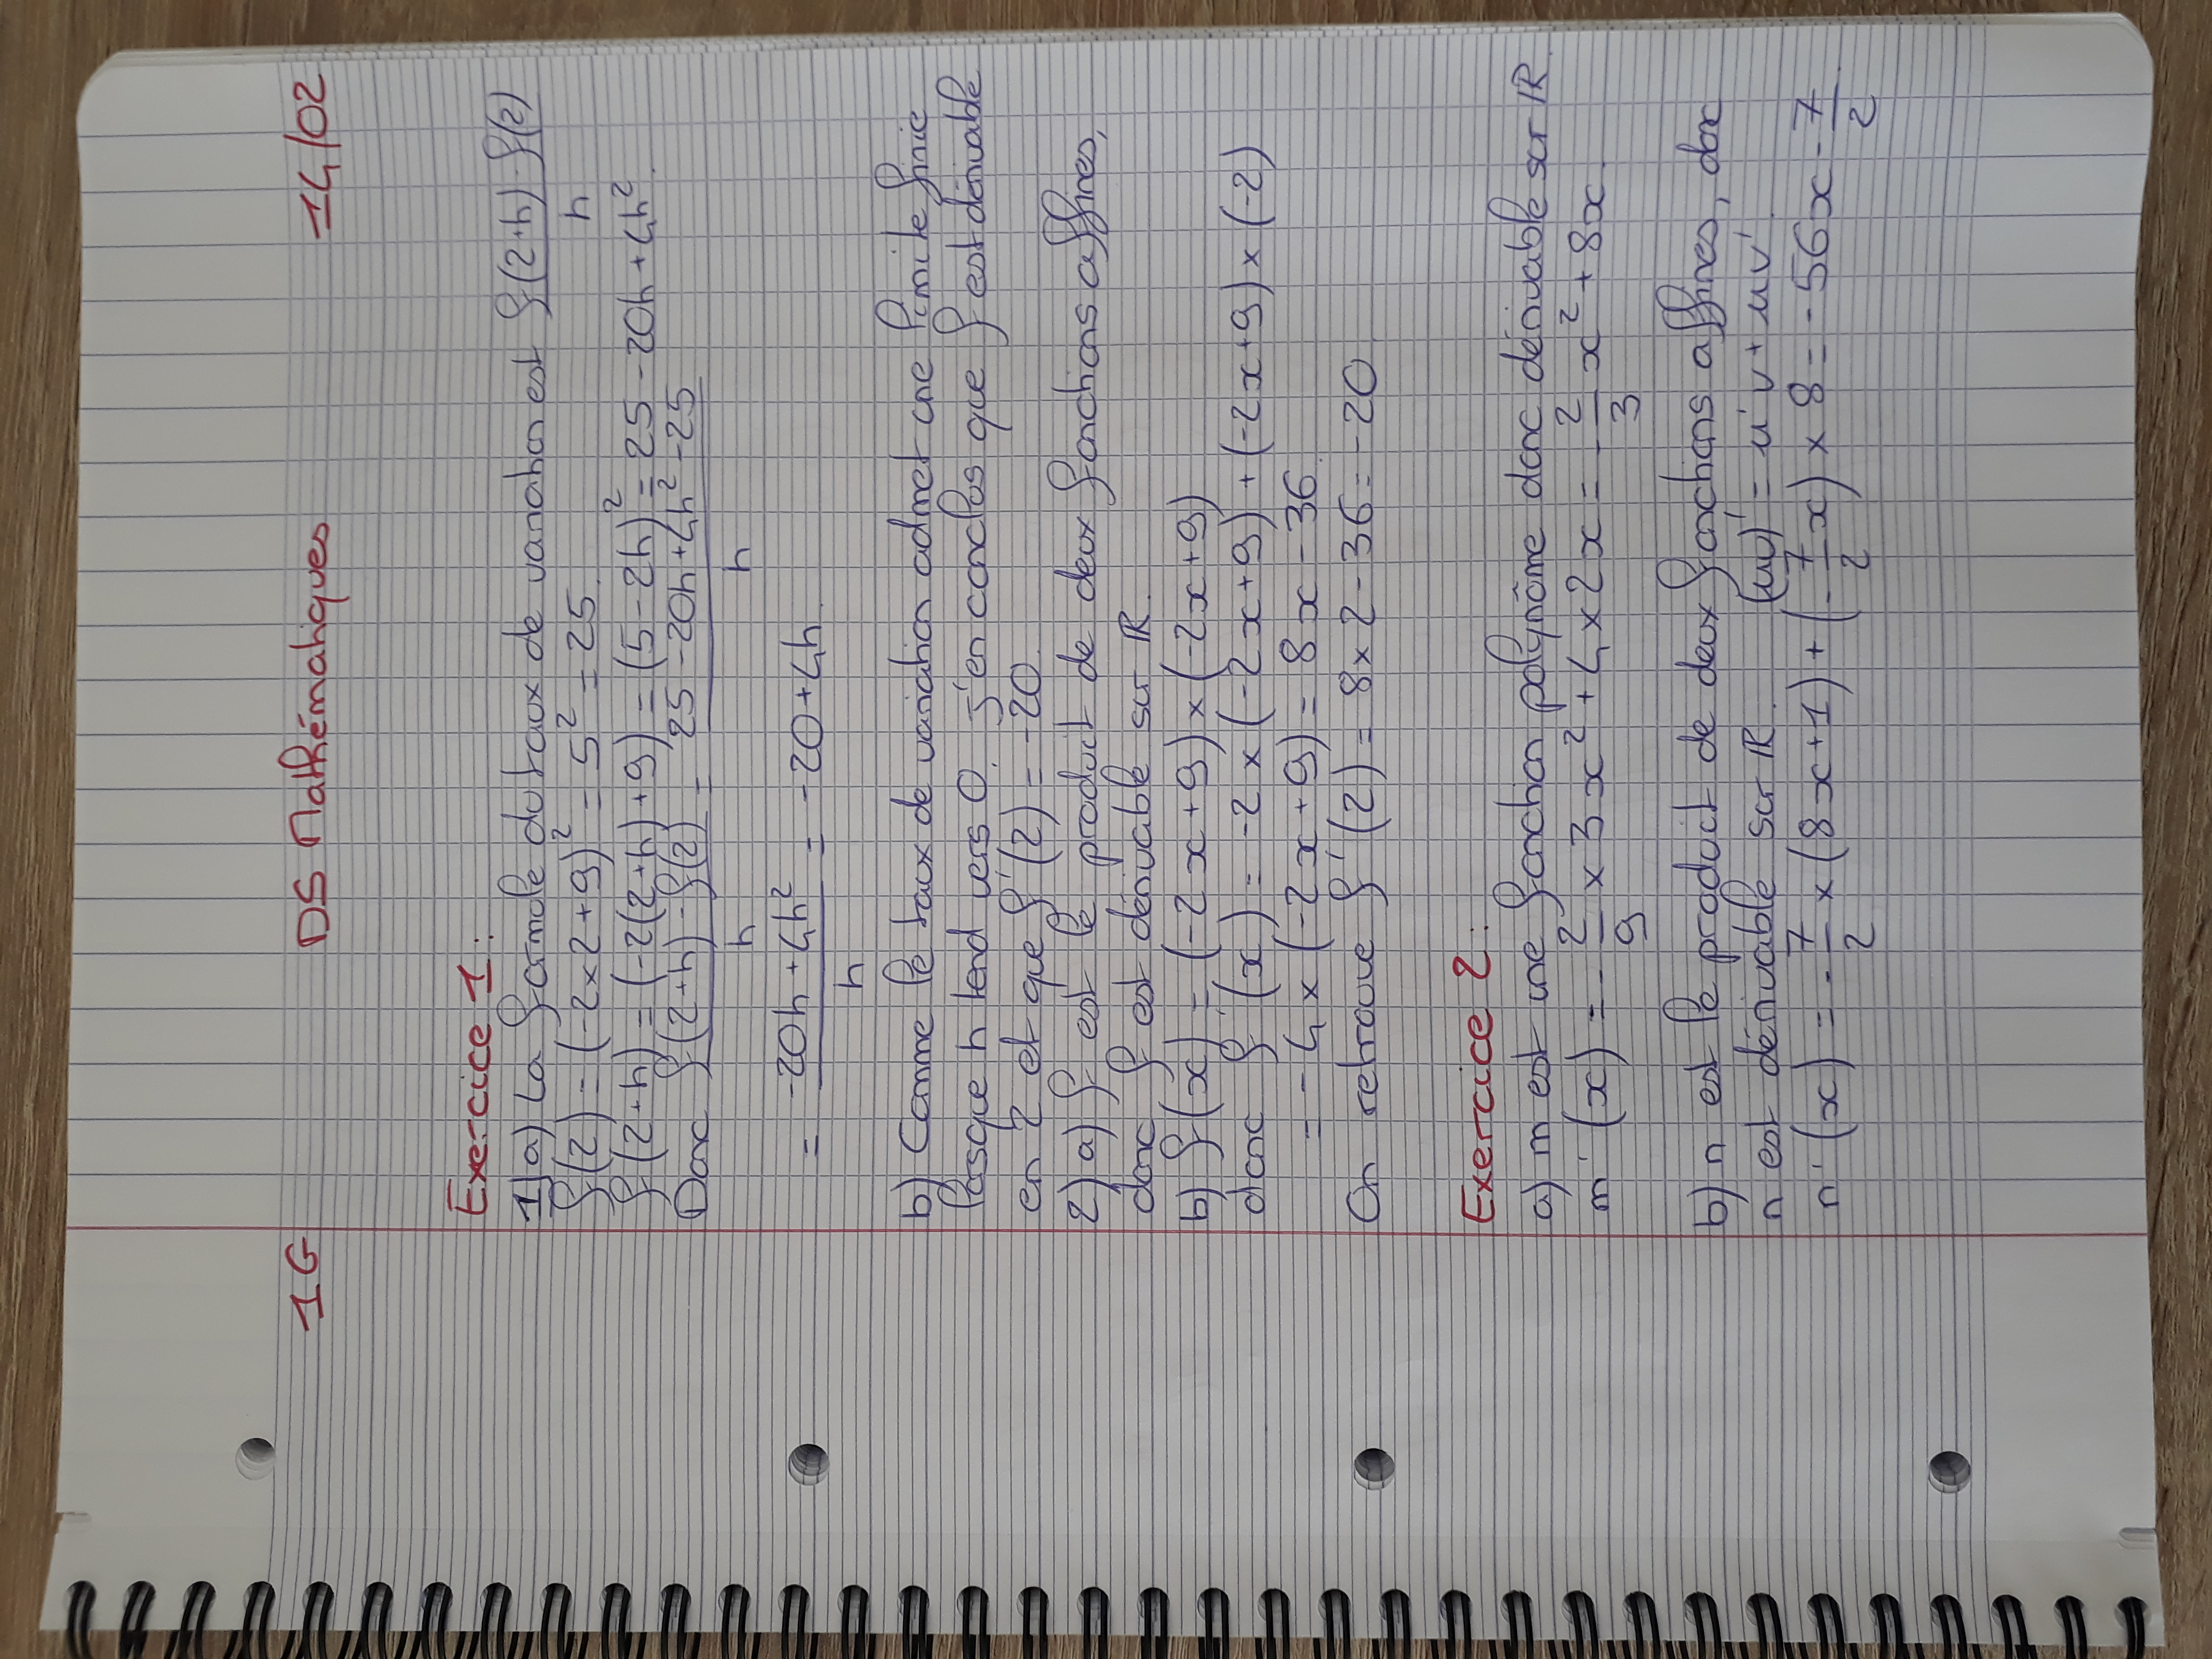 1G DS Mathématiques 14/02
Exercice 1 :
1) a) La formule du taux de variation est f(2+h)-f(2)/h
f(2) = (-2×2+9)² = 5² = 25.
f(2+h) = (-2(2+h)+9) = (5-2h)² = 25-20h+4h².
Donc f(2+h)-f(2)/h = 25-20h+4h²-25/h
= -20h+4h²/h = -20+4h.
b) Comme le taux de variation admet une limite finie
lorsque h tend vers 0, j'en conclus que f est dérivable
en 2 et que f'(2) = -20.
2) a) f est le produit de deux fonctions affines,
donc f est dérivable sur ℝ.
b) f(x) = (-2x+9)×(-2x+9)
donc f'(x) = -2×(-2x+9)+(-2x+9)×(-2)
= -4×(-2x+9) = 8x-36.
On retrouve f'(2) = 8×2-36 = -20.
Exercice 2 :
a) m est une fonction polynôme donc dérivable sur ℝ.
m'(x) = -2/9 × 3x² + 4×2x = -2/3 x² + 8x.
b) n est le produit de deux fonctions affines, donc
n est dérivable sur ℝ. (uv)' = u'v + uv'.
n'(x) = -7/2 × (8x+1) + (-7/2 x) × 8 = -56x - 7/2.